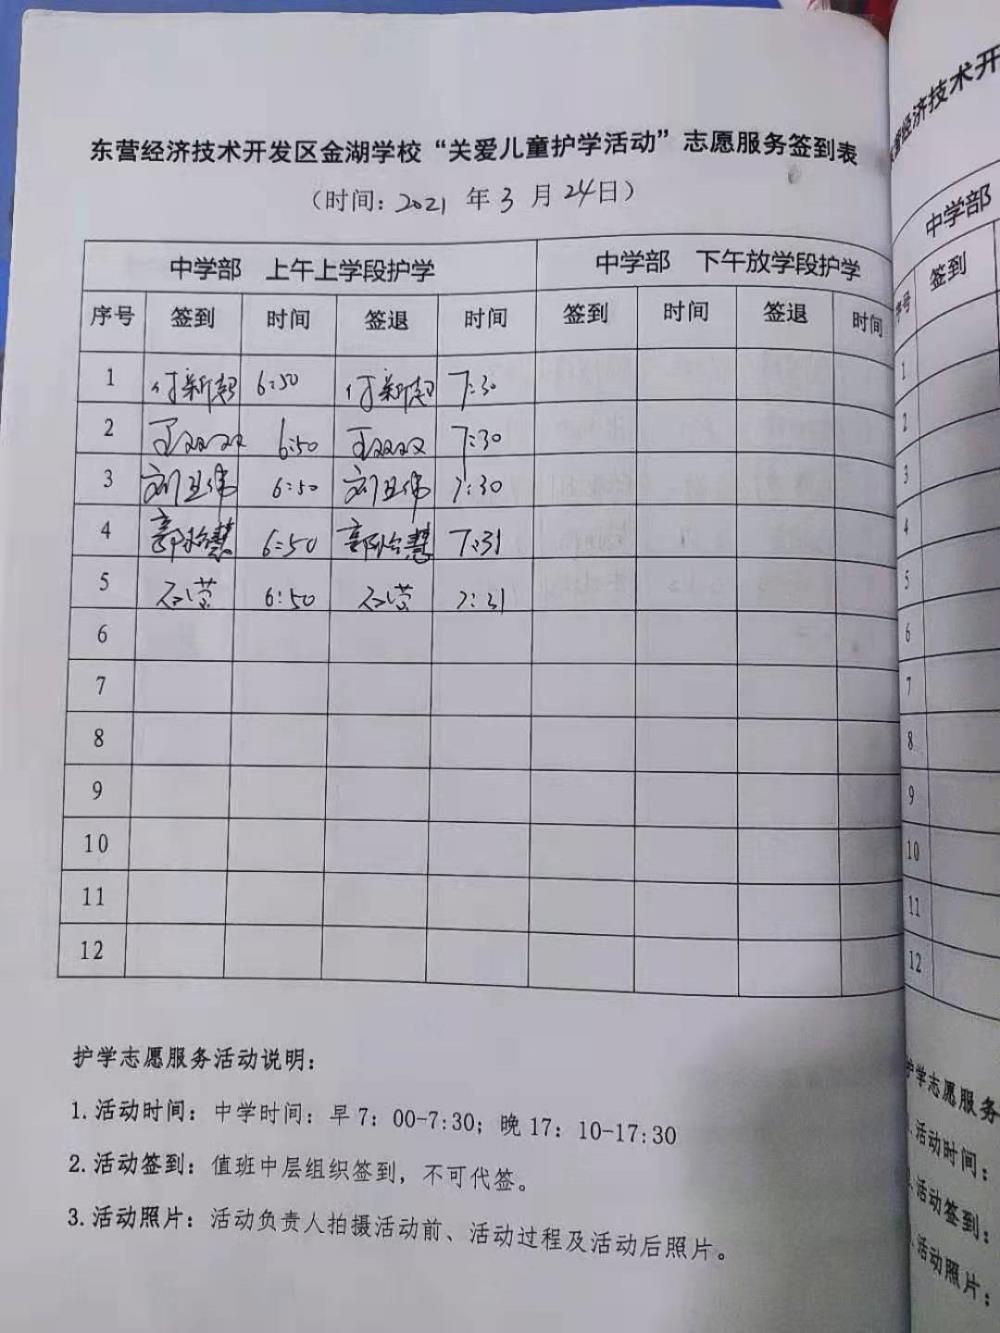 东营经济技术开发区金湖学校“关爱儿童护学活动”志愿服务签到表
（时间：2021 年 3 月 24日）
中学部 上午上学段护学 中学部 下午放学段护学
序号 签到 时间 签退 时间 签到 时间 签退 时间
1 付新超 6:50 付新超 7:30
2 王双双 6:50 王双双 7:30
3 刘卫伟 6:50 刘卫伟 7:30
4 郭慧 6:50 郭慧 7:31
5 石莹 6:50 石莹 7:31
6
7
8
9
10
11
12
护学志愿服务活动说明：
1.活动时间：中学时间：早7：00-7:30；晚17：10-17:30
2.活动签到：值班中层组织签到，不可代签。
3.活动照片：活动负责人拍摄活动前、活动过程及活动后照片。
营经济技术开
中学部
序号 签到
1
2
3
4
5
6
7
8
9
10
11
12
护学志愿服务
.活动时间：
.活动签到：
.活动照片：